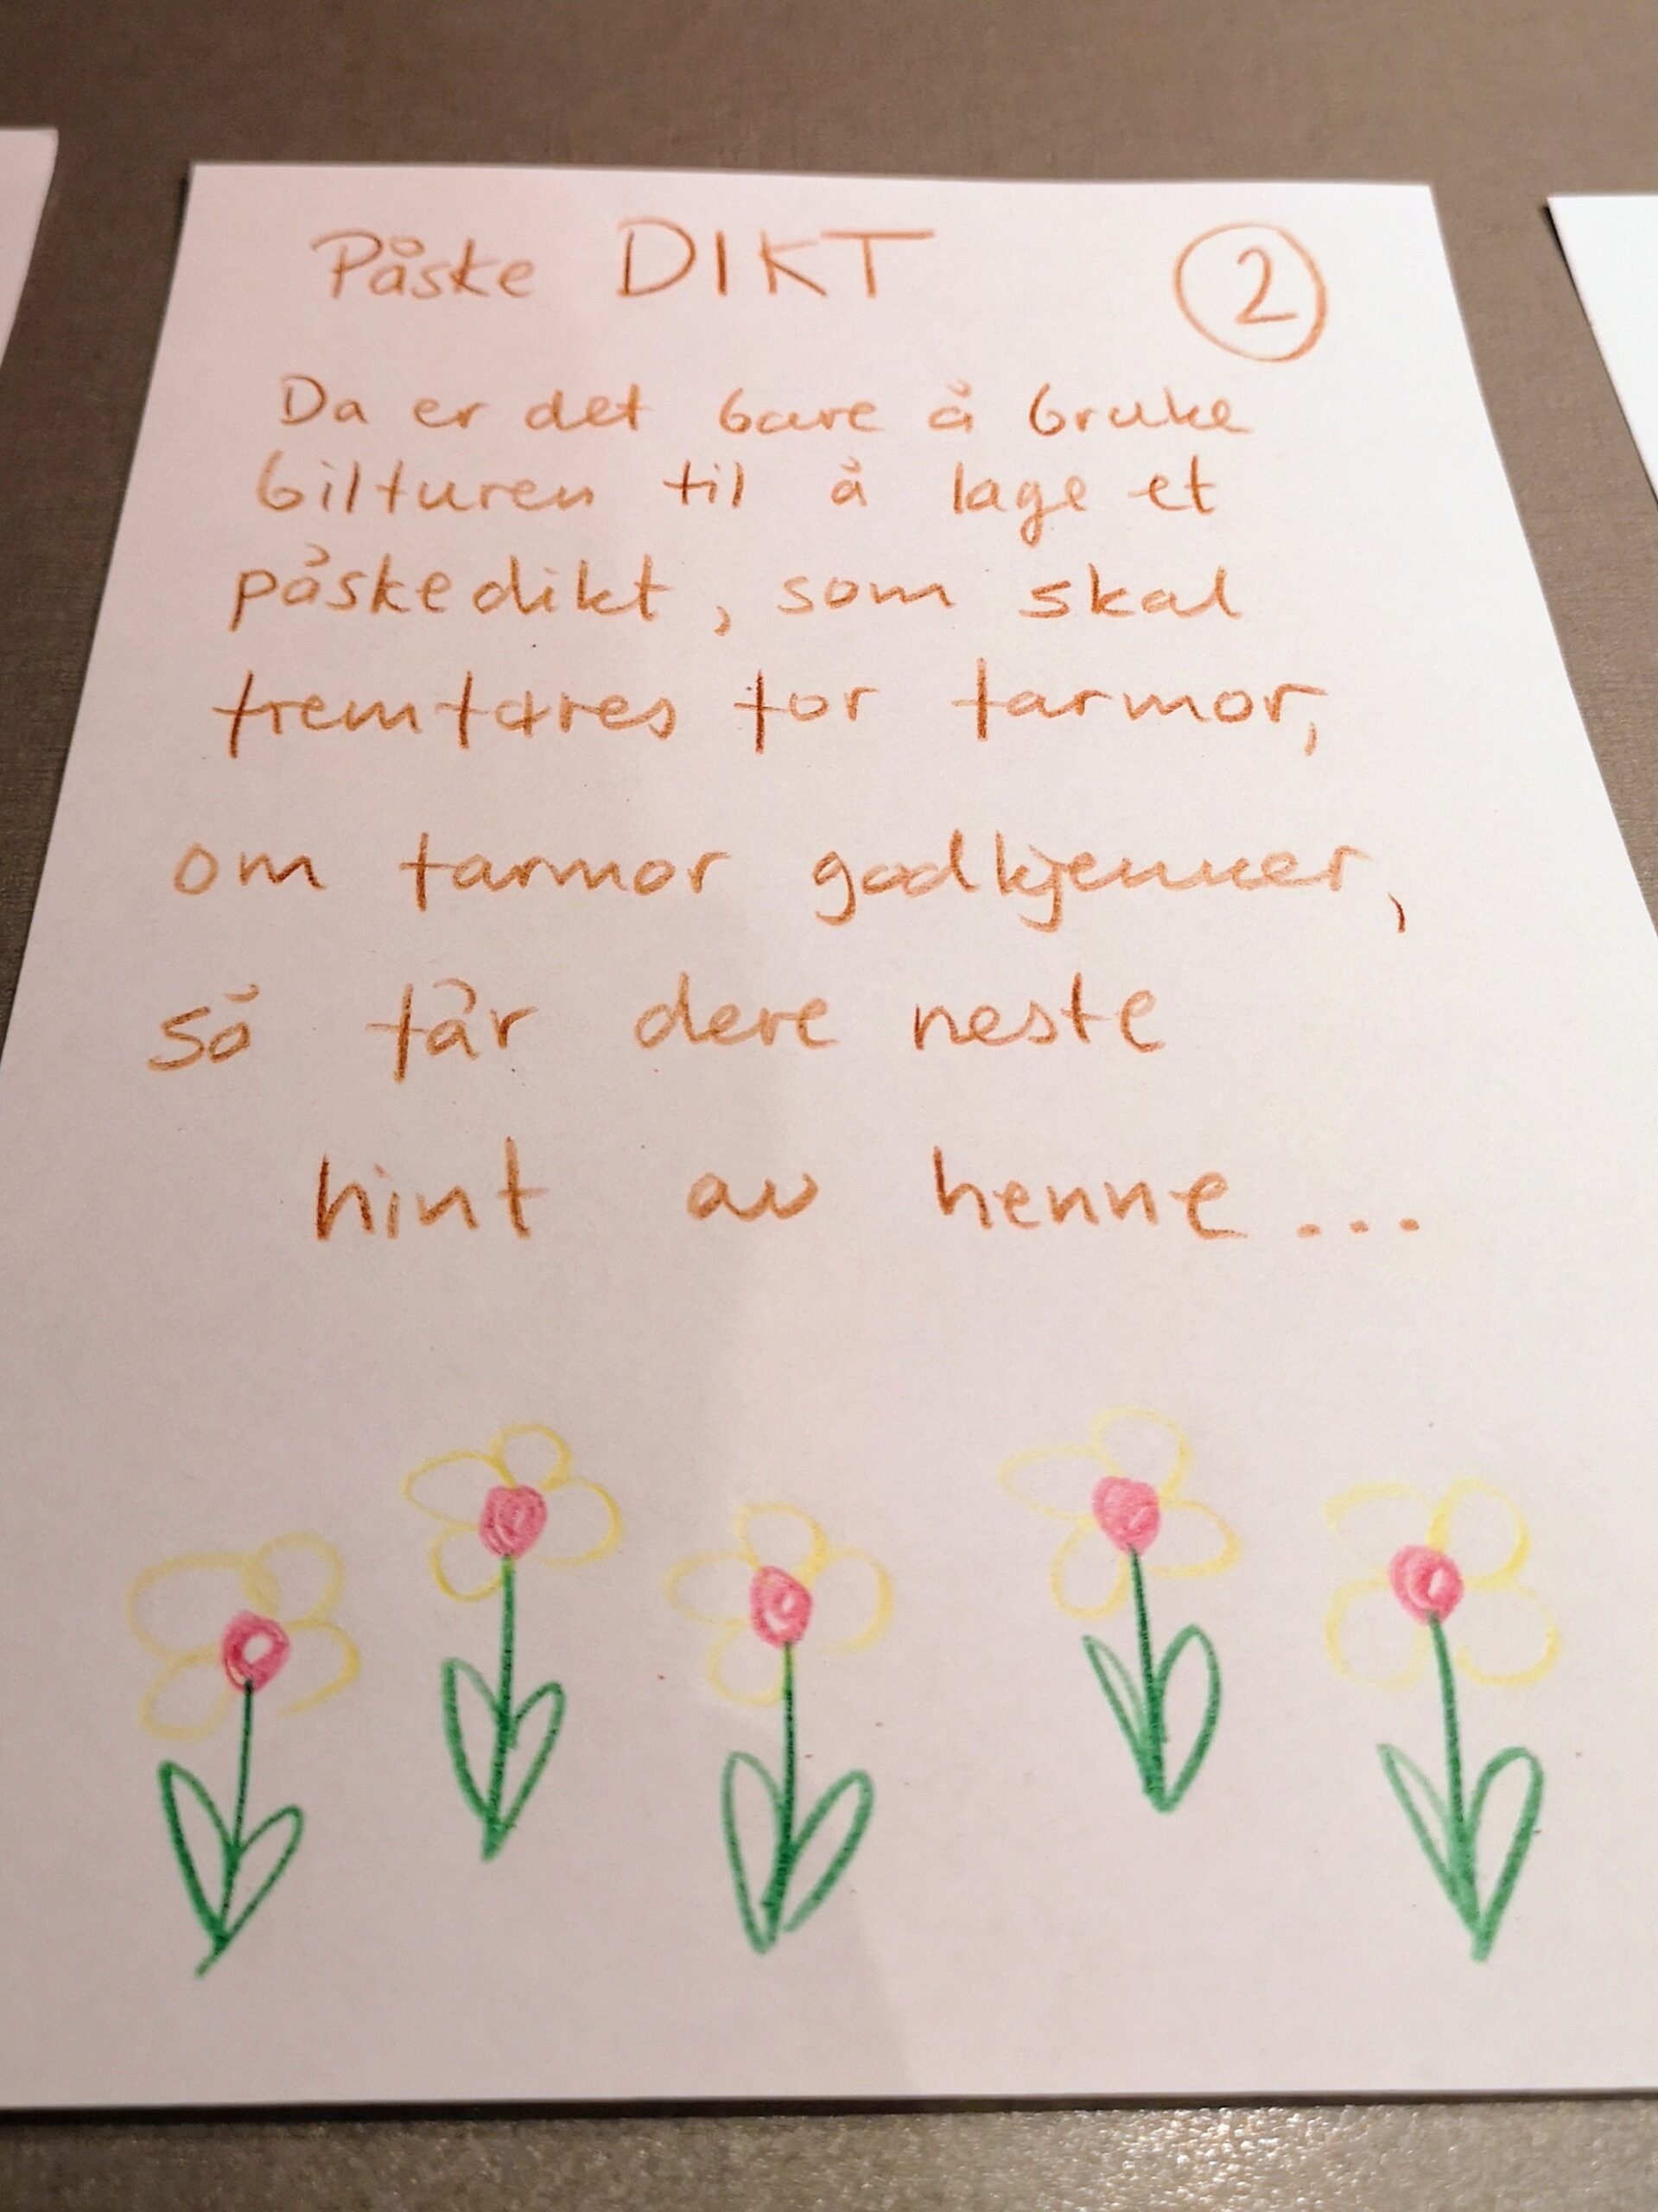 Påske DIKT 2
Da er det bare å bruke
bilturen til å lage et
påskedikt, som skal
fremføres for farmor,
om farmor godkjenner,
så får dere neste
hint av henne...